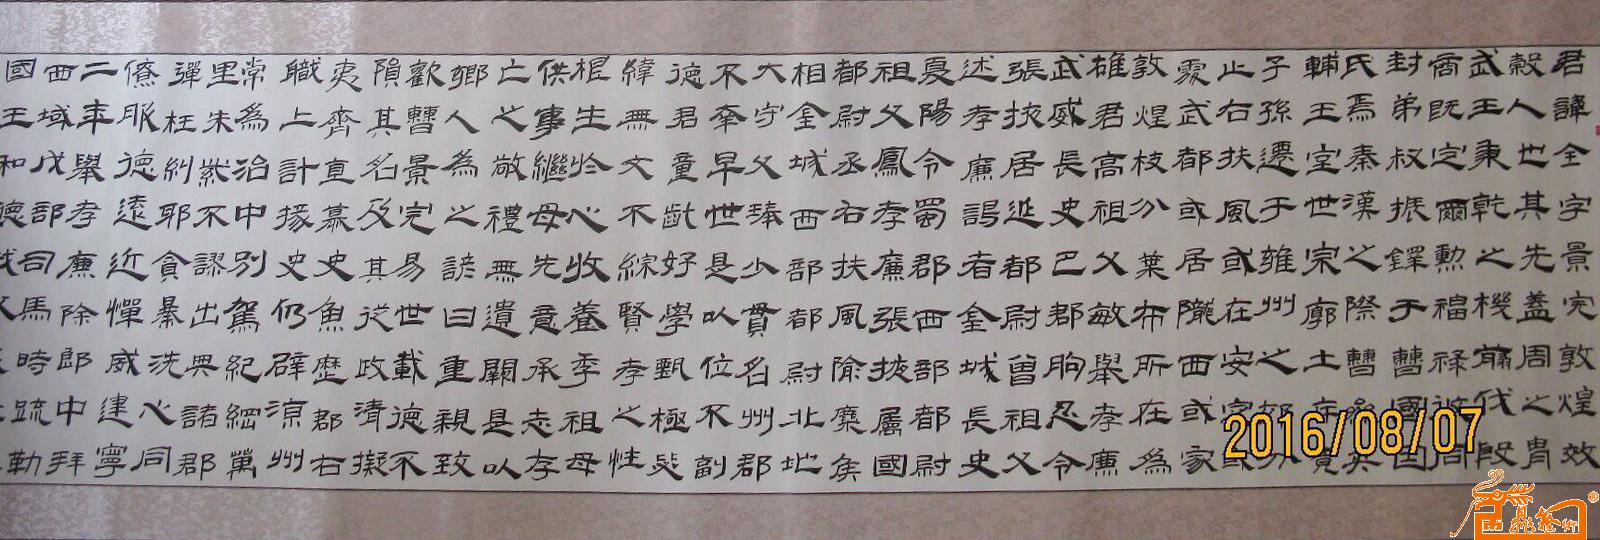 君諱全字景完敦煌效
穀人也其先蓋周之冑
武王秉乾之機翦伐殷
商既定爾勳福祿攸同
封弟叔振鐸于曹國因
氏焉秦漢之際曹參夾
輔王室世宗廓土斥竟
子孫遷于雍州之郊分
止右扶風或在安定或
處武都或居隴西或家
敦煌枝分葉布所在為
雄君高祖父敏舉孝廉
武威長史巴郡朐忍令
張掖居延都尉曾祖父
述孝廉謁者金城長史
夏陽令蜀郡西部都尉
祖父鳳孝廉張掖屬國
都尉丞右扶風隃麋矦
相金城西部都尉北地
大守父琫少貫名州郡
不幸早世是以位不副
德君童齔好學甄極毖
緯無文不綜賢孝之性
根生於心收養季祖母
供事繼母先意承志存
亡之敬禮無遺闕是以
鄉人為之諺曰重親致
歡曹景完易世載德不
隕其名及其從政清擬
夷齊直慕史魚歷郡右
職上計掾史仍辟涼州
常為治中別駕紀綱萬
里朱紫不謬出典諸郡
彈枉糾邪貪暴洗心同
僚服德遠近憚威建寧
二年舉孝廉除郎中拜
西域戊部司馬時疏勒
國王和德
2016/08/07